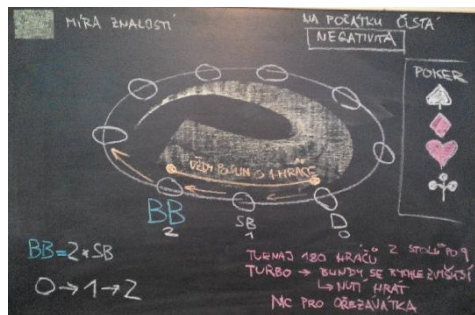 MÍRA ZNALOSTÍ
NA POČÁTKU ČISTÁ
NEGATIVITA
POKER
VŽDY POSUN O 1 HRÁČE
BB
2
SB
1
D
0
BB=2*SB
0→1→2
TURNAJ 180 HRÁČŮ Z STOLŮ PO 9
TURBO → BLINDY SE RYCHLE ZVYŠUJÍ
↳ NUTÍ HRÁT
NIC PRO OŘEZÁVÁTKA